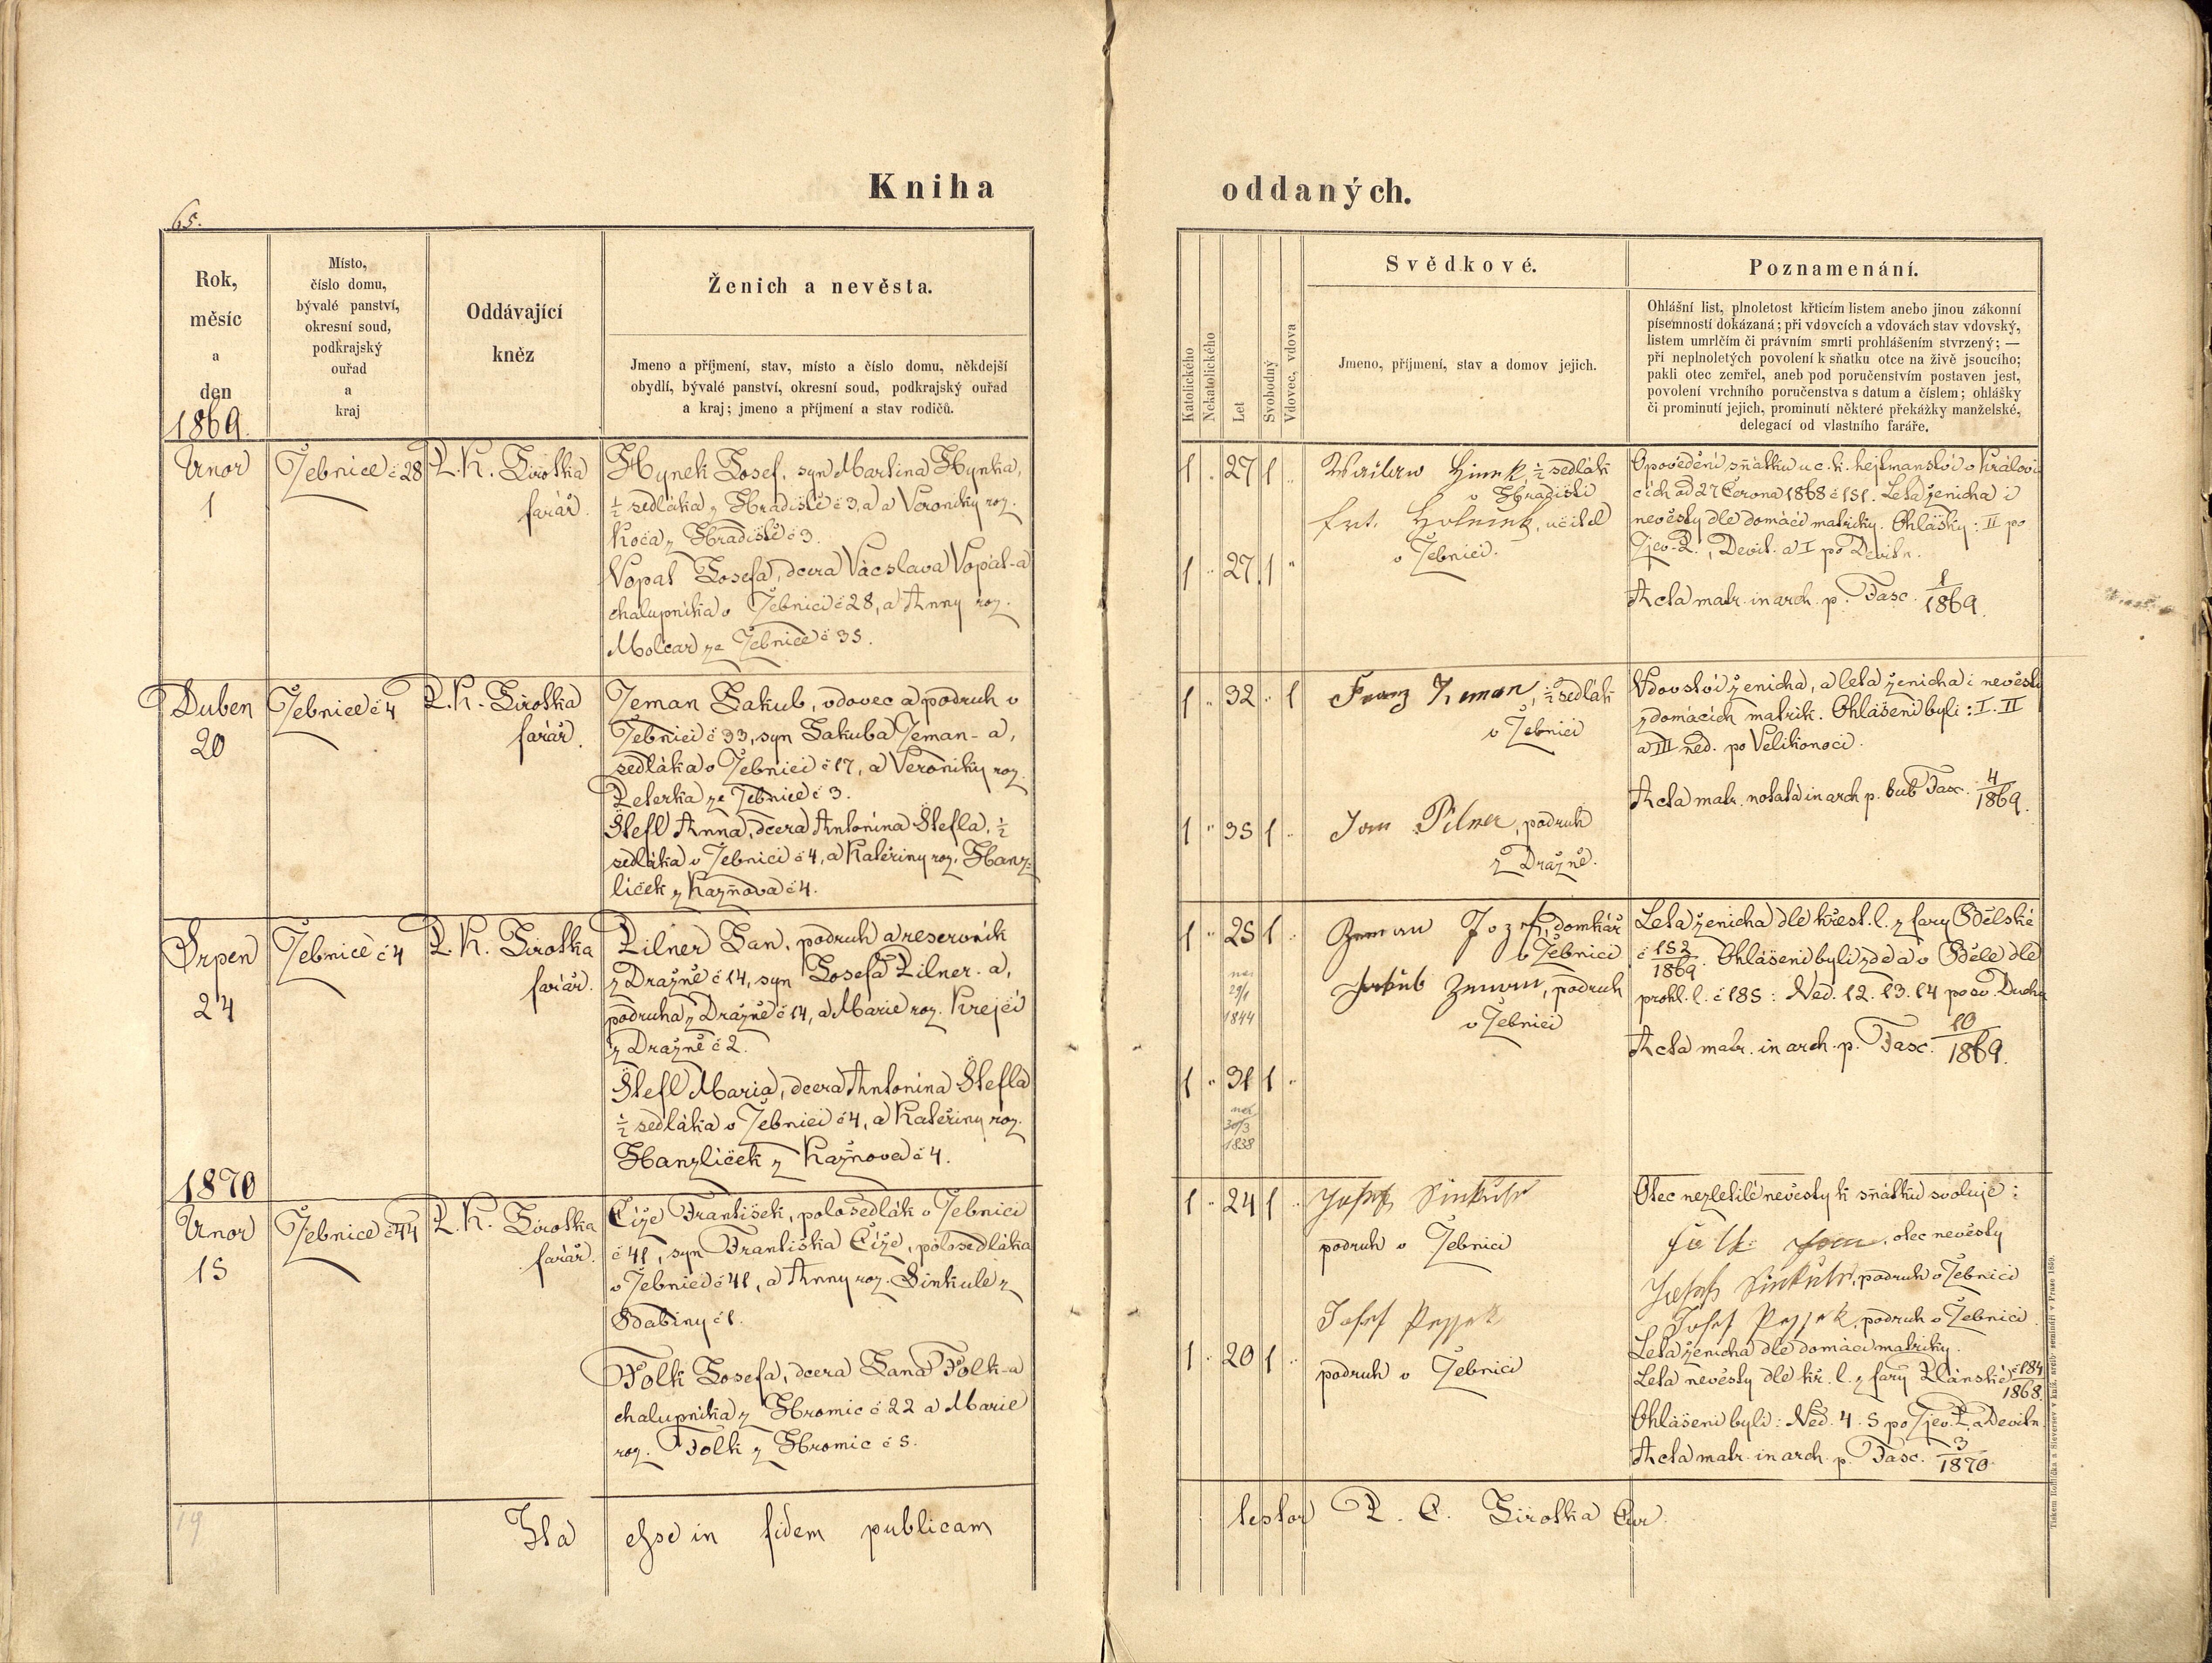 Kniha
oddaných.
65.
Rok,
měsíc
a
den
1869.
Místo,
číslo domu,
bývalé panství,
okresní soud,
podkrajský
ouřad
a
kraj
Oddávající
kněz
Ženich a nevěsta.
Jmeno a příjmení, stav, místo a číslo domu, někdejší
obydlí, bývalé panství, okresní soud, podkrajský ouřad
a kraj; jmeno a příjmení a stav rodičů.
Katolického
Nekatolického
Let
Svobodný
Vdovec, vdova
Svědkové.
Jmeno, příjmení, stav a domov jejich.
Poznamenání.
Ohlášní list, plnoletost křticím listem anebo jinou zákonní
písemností dokázaná; při vdovcích a vdovách stav vdovský,
listem umrlčím či právním smrti prohlášením stvrzený; —
při neplnoletých povolení k sňatku otce na živě jsoucího;
pakli otec zemřel, aneb pod poručenstvím postaven jest,
povolení vrchního poručenstva s datum a číslem; ohlášky
či prominutí jejich, prominutí některé překážky manželské,
delegací od vlastního faráře.
Unor
1
Žebnice č 28
P. K. Sirotka
farář.
Hynek Josef, syn Martina Hynka,
½ sedláka z Hradiště č 3, a Veroniky roz.
Koča z Hradiště č 3.
Vopat Josefa, dcera Vácslava Vopat-a
chalupníka v Žebnici č 28, a Anny roz.
Molcar ze Žebnice č 35.
1 " 27 1 "
1 " 27 1 "
Hinek, ½ sedlák
v Hradišti
Frt. učitel
v Žebnici.
Opovědění sňatku u c. k. hejtmanství v Králov
cích od 27 Června 1868 č 151. Leta ženicha i
nevěsty dle domácí matriky. Ohlášky: II po
Zjev. P., Devít. a I po Devítn.
Acta matr. in arch. p. Fasc. 1/1869.
Duben
20
Žebnice č 4
P. K. Sirotka
farář.
Zeman Jakub, vdovec a podruh v
Žebnici č 33, syn Jakuba Zeman-a,
sedláka v Žebnici č 17, a Veroniky roz.
Peterka ze Žebnice č 3.
Štefl Anna, dcera Antonína Štefla, ½
sedláka v Žebnici č 4, a Kateřiny roz. Hanz-
líček z Kazňova č 4.
1 " 32 " 1
1 " 35 1 "
Franz Zeman, ½ sedlák
v Žebnici
Jan Pilner, podruh
z Dražně.
Vdovství ženicha, a leta ženicha i nevěsty
z domácích matrik. Ohlášeni byli: I. II
a III ned. po Velikonoci.
Acta matr. notata in arch p. sub Fasc. 4/1869.
Srpen
24
Žebnice č 4
P. K. Sirotka
farář.
Pilner Jan, podruh a reservník
z Dražně č 14, syn Josefa Pilner-a,
podruha z Dražně č 14, a Marie roz. Krejčí
z Dražně č 2.
Štefl Maria, dcera Antonína Štefla
½ sedláka v Žebnici č 4, a Kateřiny roz.
Hanzlíček z Kazňova č 4.
1 " 25 1 "
nar.
29/1
1844
1 " 31 1 "
nar.
30/3
1838
Zeman Jozef, domkář
v Žebnici
Jakub Zeman, podruh
v Žebnici
Leta ženicha dle křest. l. z fary Bdělské
č 152/1869. Ohlášeni byli zde a v Běle dle
prohl. l. č 185: Ned. 12. 13. 14 po sv. Duchu
Acta matr. in arch. p. Fasc. 10/1869.
1870
Unor
15
Žebnice č 44
P. K. Sirotka
farář.
Číže František, polosedlák v Žebnici
č 41, syn Františka Číže, polosedláka
v Žebnici č 41, a Anny roz. Šinkule z
Bdabiny č 1.
Folk Josefa, dcera Jana Folk-a
chalupníka z Hromic č 22 a Marie
roz. Folk z Hromic č 5.
1 " 24 1 "
1 " 20 1 "
Josef Sinkule
podruh v Žebnici
Josef
podruh v Žebnici
Otec nezletilé nevěsty k sňatku svoluje:
otec nevěsty
Josef Sinkule, podruh v Žebnici
Josef podruh v Žebnici
Leta ženicha dle domácí matriky.
Leta nevěsty dle kř. l. z fary Plánské č 184/1868.
Ohlášeni byli: Ned. 4. 5 po Zjev. P. a Devítn.
Acta matr. in arch. p. Fasc. 3/1870.
Ita esse in fidem publicam
testor P. C. Sirotka Cur.
19